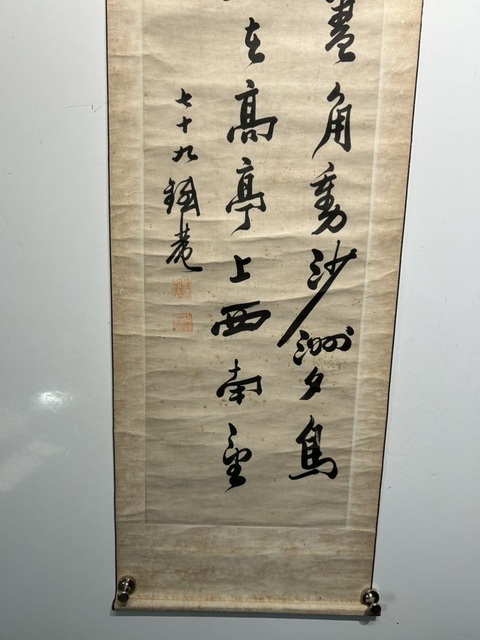 畫角動沙洲夕鳥
在高亭上西南望
七十九鐵菴